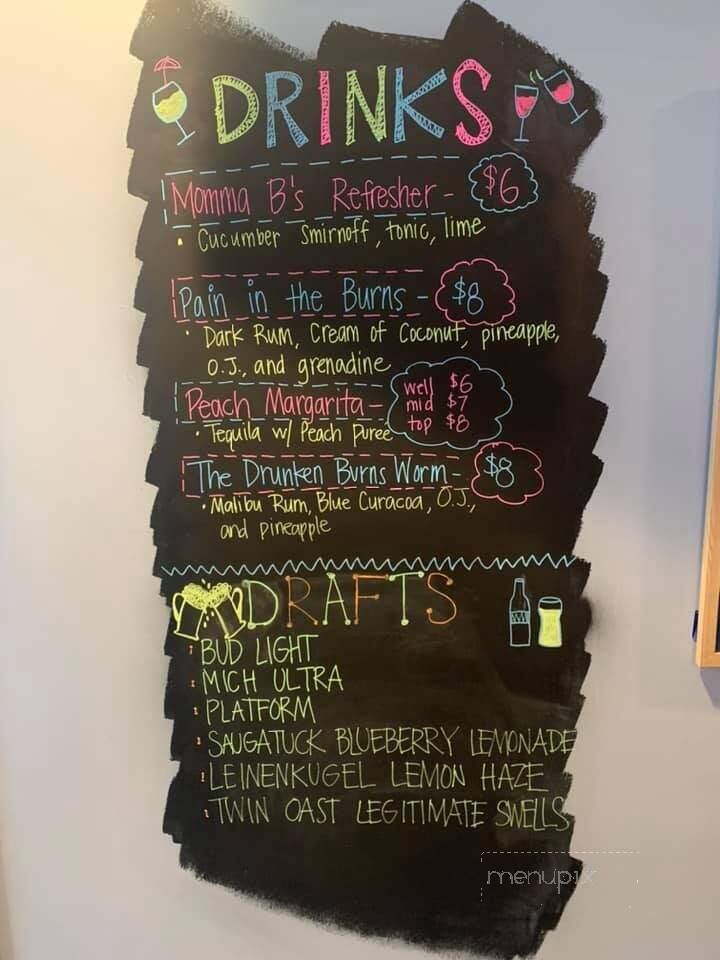 DRINKS
Momma B's Refresher - $6
• Cucumber Smirnoff, tonic, lime
Pain in the Burns - $8
• Dark Rum, Cream of Coconut, pineapple,
O.J., and grenadine
Peach Margarita - well $6
mid $7
top $8
• Tequila w/ Peach Puree
The Drunken Burns Worm - $8
• Malibu Rum, Blue Curacoa, O.J.,
and pineapple
DRAFTS
: BUD LIGHT
: MICH ULTRA
: PLATFORM
: SAUGATUCK BLUEBERRY LEMONADE
: LEINENKUGEL LEMON HAZE
: TWIN OAST LEGITIMATE SWELLS
menupix